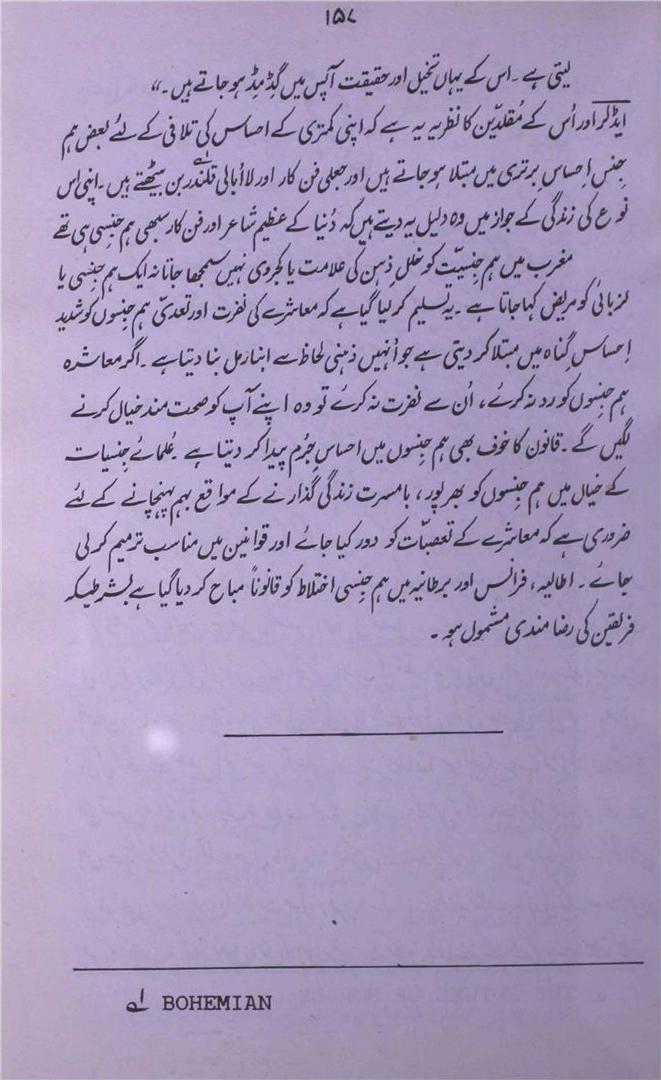 ۱۵۸
لیتی ہے ۔ اس کے یہاں تخیل اور حقیقت آپس میں گڈمڈ ہو جاتے ہیں ۔“
ایڈلر اور اُس کے مُقلدّین کا نظریہ یہ ہے کہ اپنی کمتری کے احساس کی تلافی کے لئے بعض ہم
جِنس اِحساسِ برتری میں مبتلا ہو جاتے ہیں اور جعلی فن کار اور لااُبالی قلندر ؎۱ بن بیٹھتے ہیں ۔ اپنی اس
نوع کی زندگی کے جواز میں وہ دلیل یہ دیتے ہیں کہ دُنیا کے عظیم شاعر اور فن کار سبھی ہم جِنسی ہی تھے
مغرب میں ہم جِنسیّت کو خللِ ذہن کی علامت یا کجروی نہیں سمجھا جاتا نہ ایک ہم جِنسی یا
لزبائی کو مریض کہا جاتا ہے ۔ یہ تسلیم کر لیا گیا ہے کہ معاشرے کی نفرت اور تعدیّ ہم جِنسوں کو شدید
اِحساسِ گناہ میں مبتلا کر دیتی ہے جو اُنہیں ذہنی لحاظ سے ابنارمل بنا دیتا ہے ۔ اگر معاشرہ
ہم جِنسوں کو رد نہ کرے ، اُن سے نفرت نہ کرے تو وہ اپنے آپ کو صحت مند خیال کرنے
لگیں گے ۔ قانون کا خوف بھی ہم جِنسوں میں احساسِ جُرم پیدا کر دیتا ہے ۔ عُلمائے جِنسیات
کے خیال میں ہم جِنسوں کو بھرپور ، بامسرت زندگی گذارنے کے مواقع بہم پہنچانے کے لئے
ضروری ہے کہ معاشرے کے تعصبّات کو دور کیا جائے اور قوانین میں مناسب ترمیم کر لی
جائے ۔ اطالیہ ، فرانس اور برطانیہ میں ہم جِنسی اختلاط کو قانوناً مباح کر دیا گیا ہے بشرطیکہ
فریقین کی رضامندی مشمول ہو ۔
؎۱ BOHEMIAN